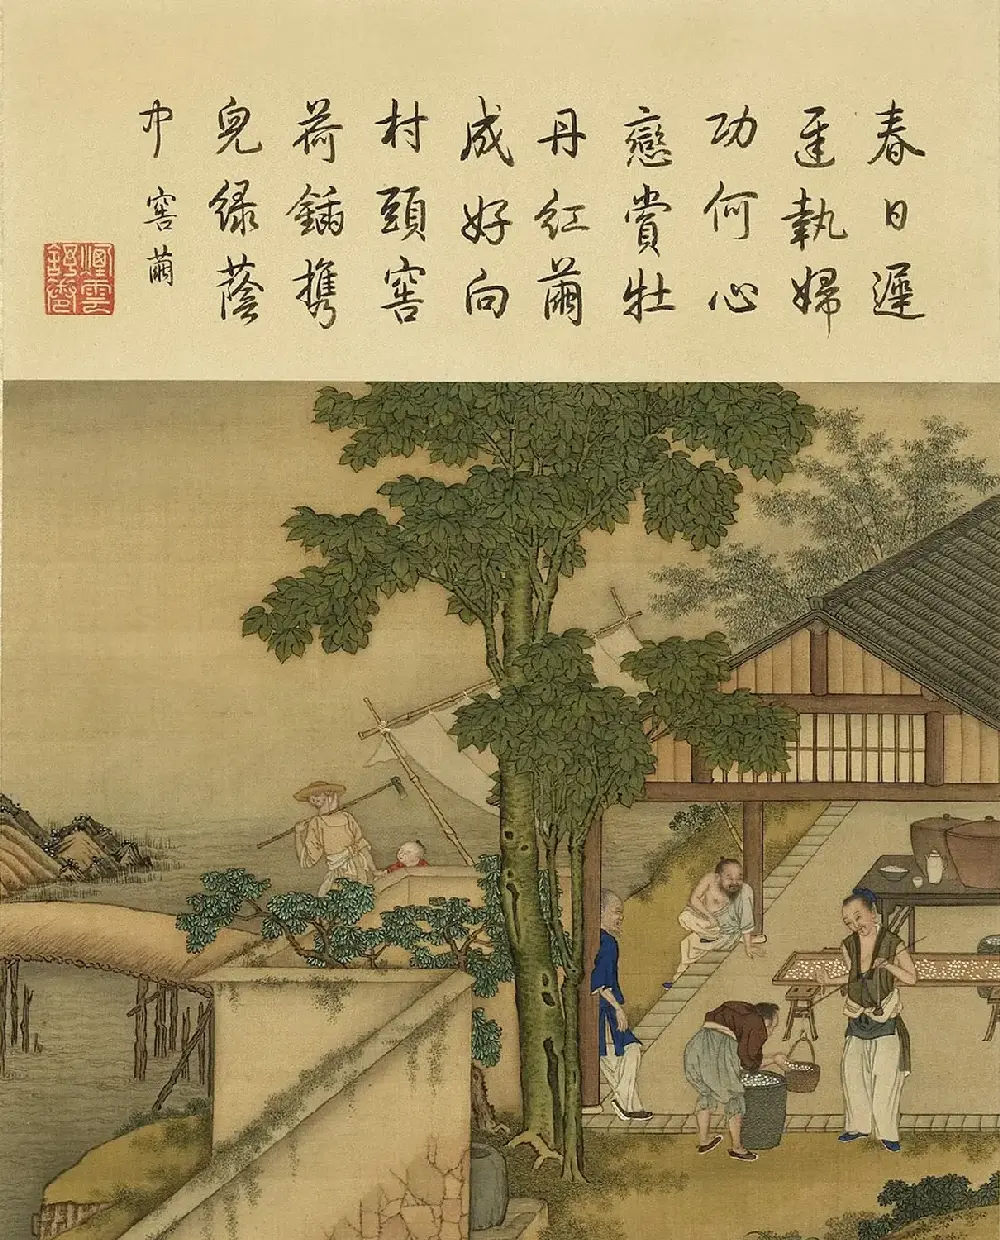 春日遲
遲執婦
功何心
戀賞牡
丹紅繭
成好向
村頭窖
荷鍤携
兒綠蔭
中 窖繭